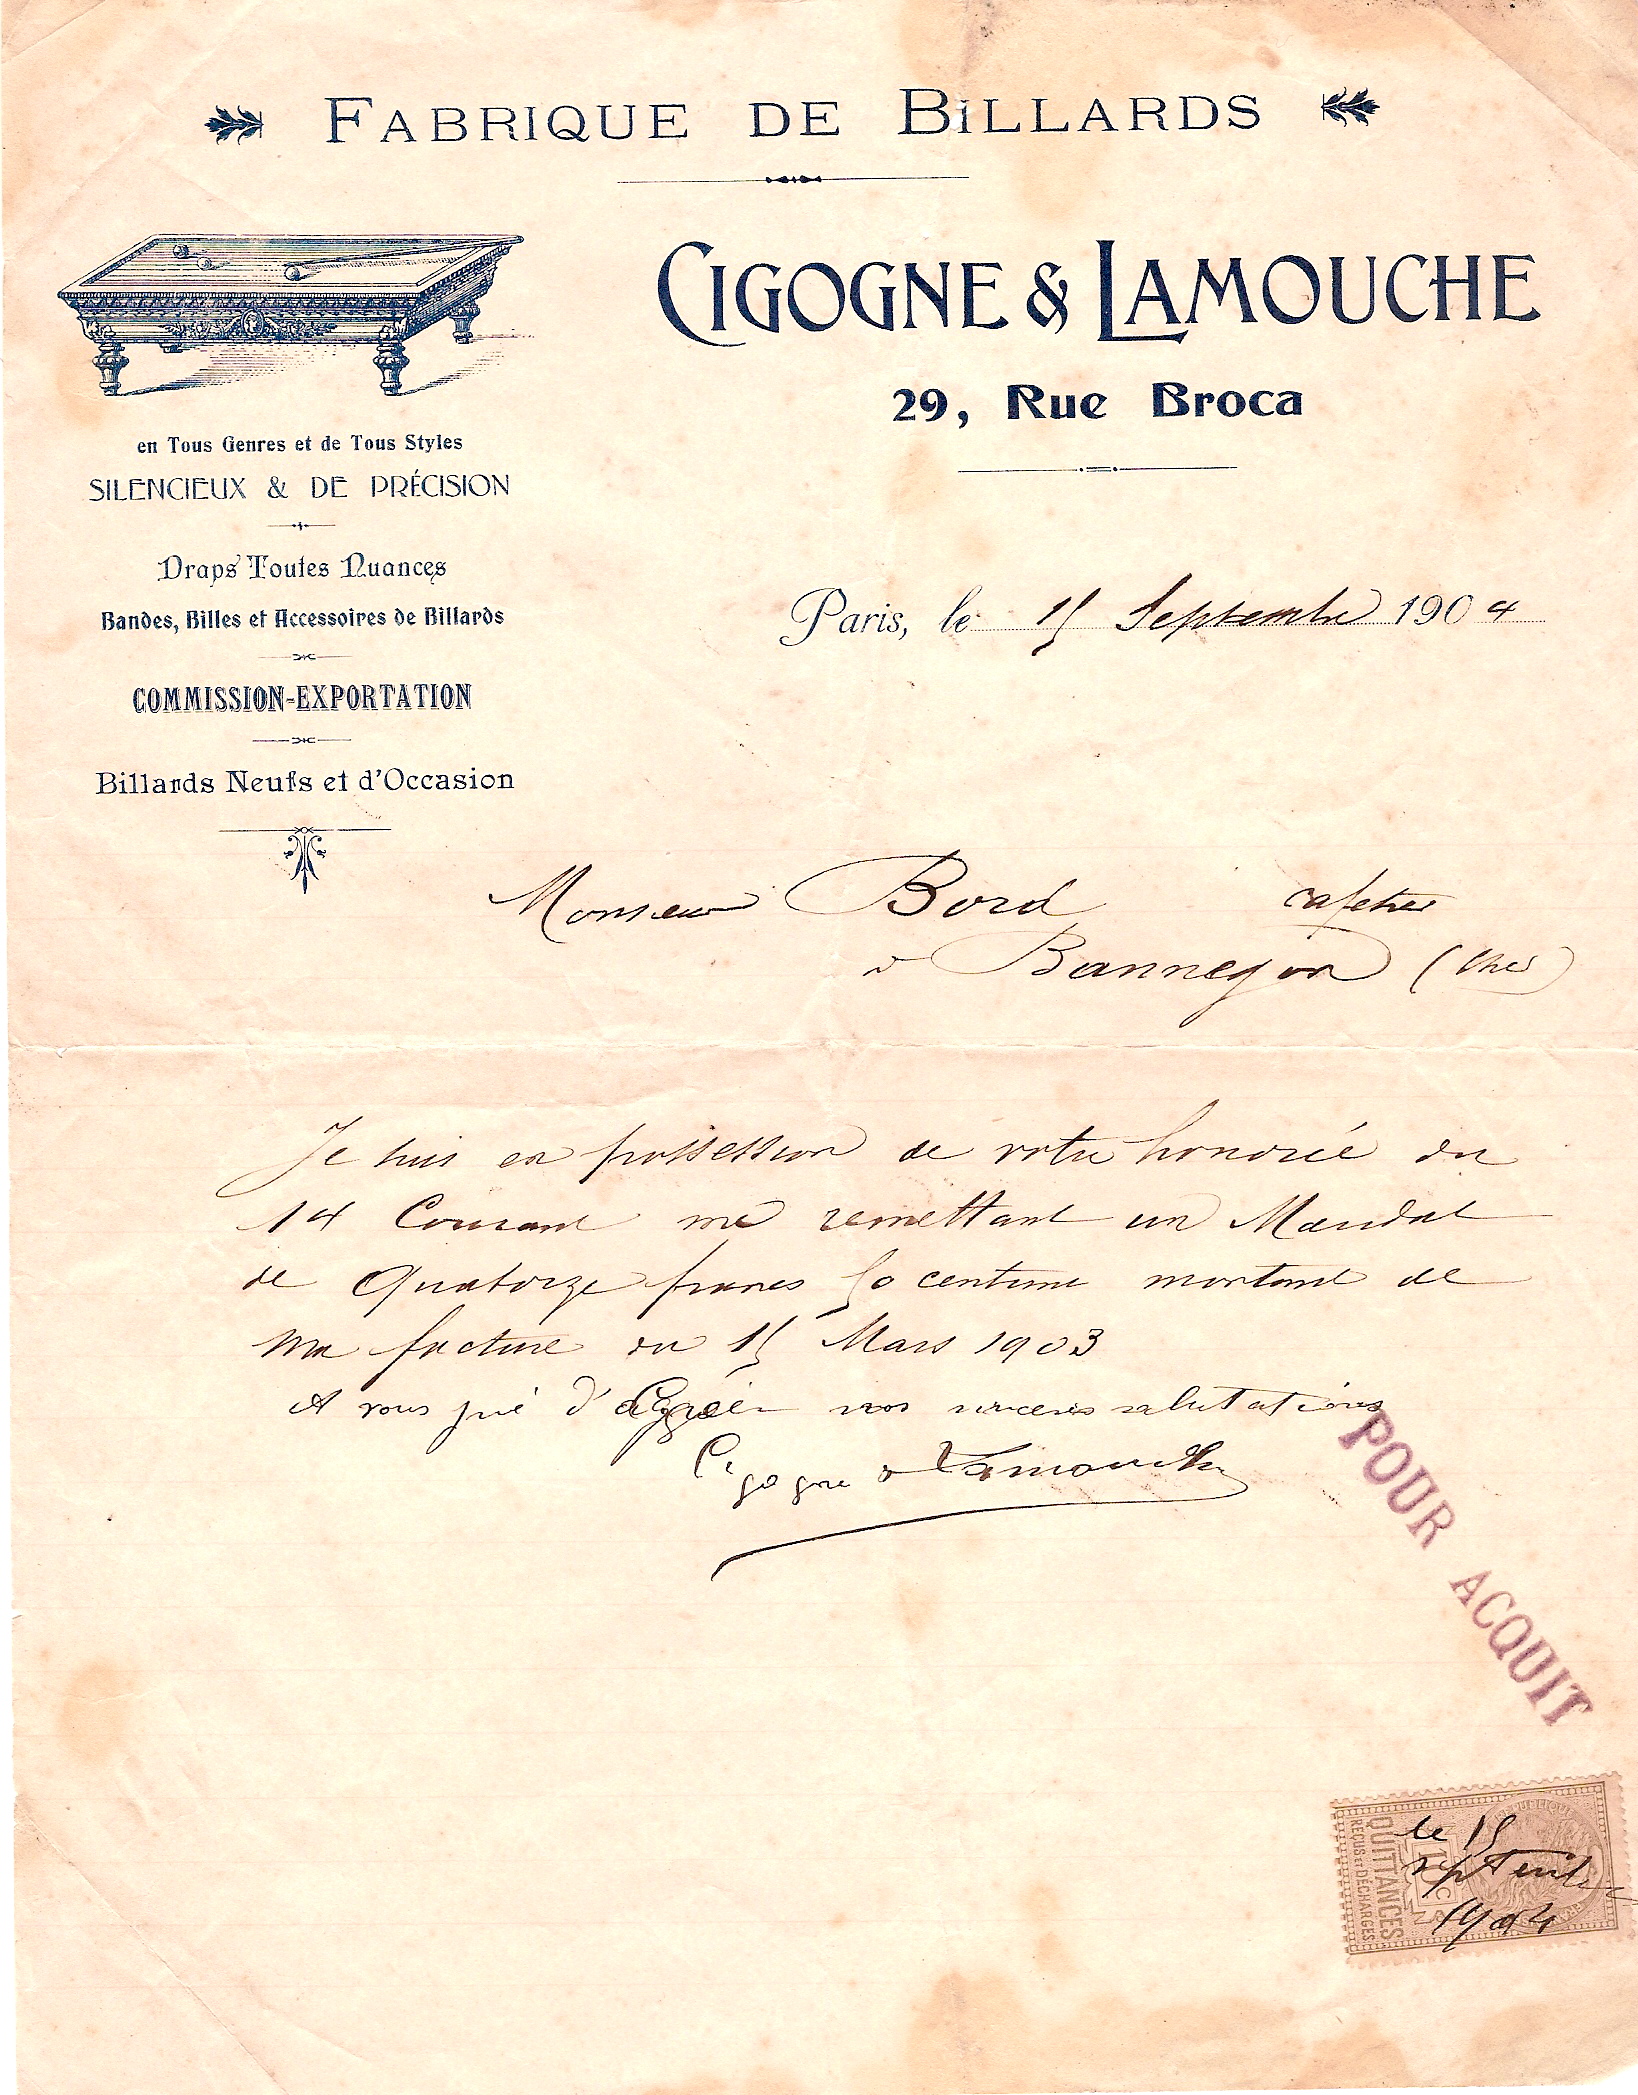 FABRIQUE DE BILLARDS
CIGOGNE & LAMOUCHE
29, Rue Broca
en Tous Genres et de Tous Styles
SILENCIEUX & DE PRÉCISION
Draps Toutes Nuances
Bandes, Billes et Accessoires de Billards
COMMISSION-EXPORTATION
Billards Neufs et d'Occasion
Paris, le 15 Septembre 1904
Monsieur Bord cafetier
à Bannegon (Cher)
Je suis en possession de votre honorée du
14 Courant me remettant un Mandat
de Quatorze francs 50 centime montant de
ma facture du 15 Mars 1903
et vous prie d'agréer nos sincères salutations
Cigogne & Lamouche
POUR ACQUIT
QUITTANCES
REÇUS & DÉCHARGES
10 C
le 15
septembre
1904